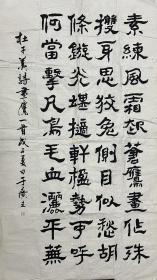 素練風霜起蒼鷹畫作殊
㩳身思狡兔側目似愁胡
絛鏇光堪擿軒楹勢可呼
何當擊凡鳥毛血灑平蕪
杜子美詩畫鷹一首戊子夏日于